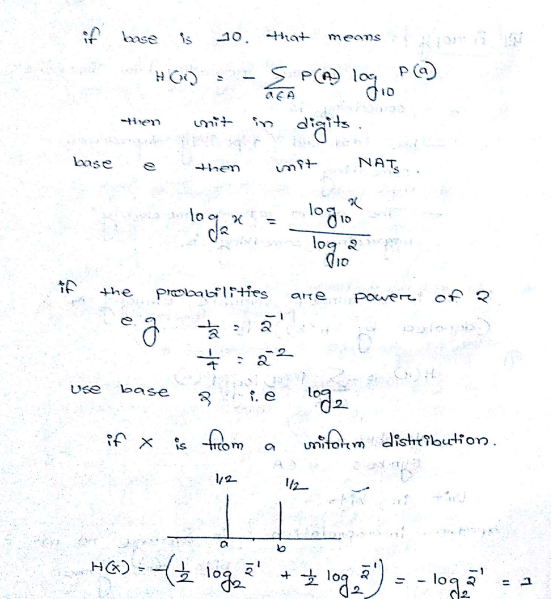 if base is 10. that means
H(x) = - Σ P(A) log₁₀ P(a)
a∈A
then unit in digits.
base e then unit NATs.
log₂ x = log₁₀ x / log₁₀ 2
if the probabilities are power of 2
e.g 1/2 = 2⁻¹
1/4 = 2⁻²
use base 2 i.e log₂
if X is from a uniform distribution.
1/2 1/2
a b
H(x) = -(1/2 log₂ 2⁻¹ + 1/2 log₂ 2⁻¹) = - log₂ 2⁻¹ = 1